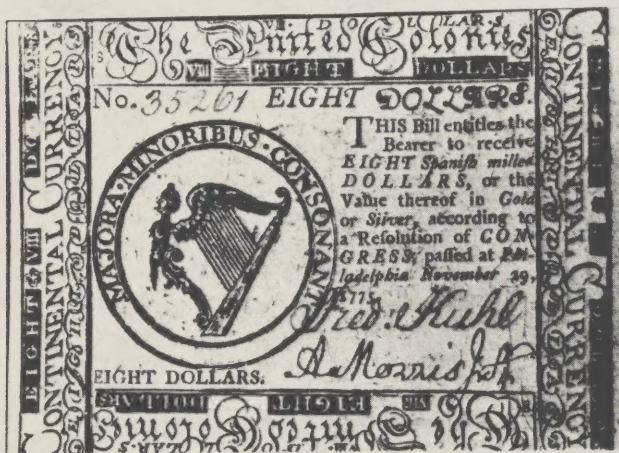 VIII DOLLARS
The United Colonies
VIII EIGHT DOLLARS
No. 35261 EIGHT DOLLARS.
THIS Bill entitles the
Bearer to receive
EIGHT Spanish milled
DOLLARS, or the
Value thereof in Gold
or Silver, according to
a Resolution of CON-
GRESS, passed at Phi-
ladelphia November 29,
1775.
MAJORA · MINORIBUS · CONSONANT
Fred. Kuhl
A Morris Jr
EIGHT DOLLARS.
CONTINENTAL CURRENCY
EIGHT DOLLARS
EIGHT & VIII
CONTINENTAL CURRENCY
EIGHT DOLLARS
EIGHT DOLLARS
The United Colonies